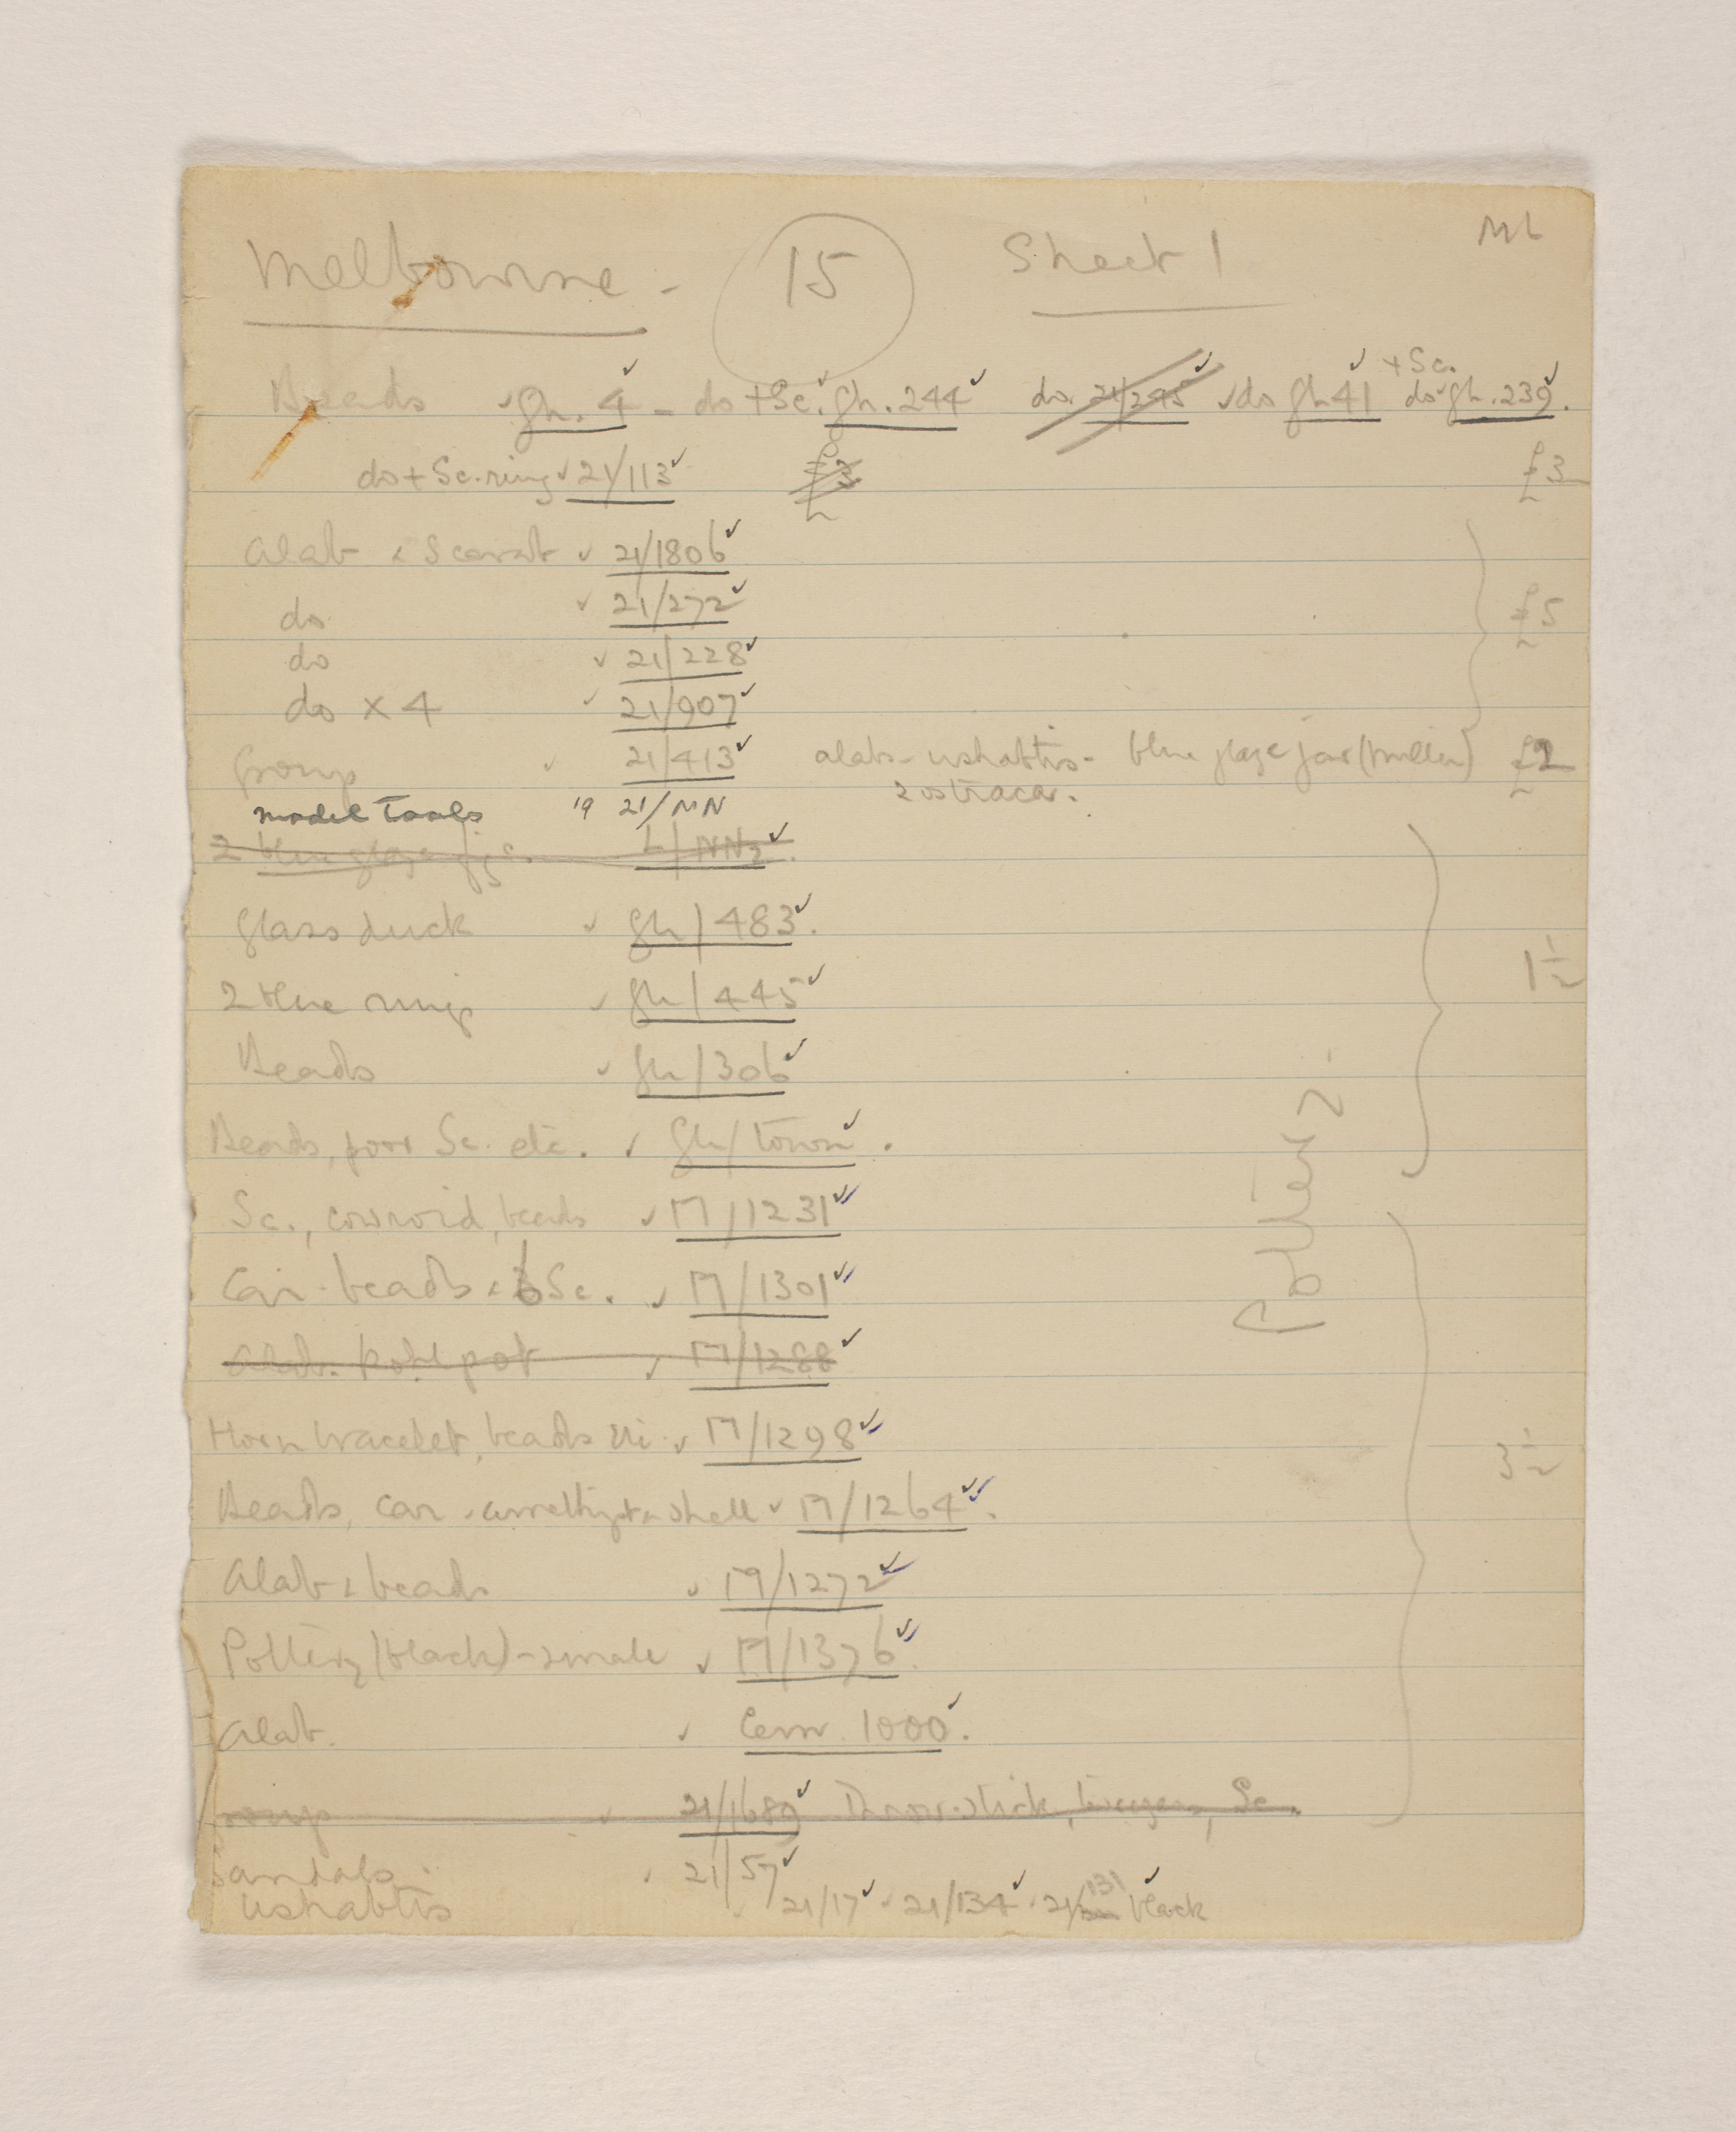 Melbourne - 15 Sheet 1 ML
+ Sc.
Beads ✓ Gh. 4 ✓ - do + Sc. ✓ Gh. 244 ✓ do. 21/245 ✓ ✓ do Gh 41 ✓ do ✓ Gh. 239 ✓.
do + Sc. ring ✓ 21/113 ✓ £3 £3
Alab & Scarab ✓ 21/1806 ✓
do ✓ 21/272 ✓ £5
do ✓ 21/228 ✓
do x 4 ✓ 21/907 ✓
Group ✓ 21/413 ✓ alab - ushabtis - blue glaze jar £2
2 ostraca.
model Tools 19 21/MN
2 blue glaze L/NN2 ✓.
Glass duck ✓ Gh/483 ✓.
2 blue rings ✓ Gh/445 ✓ 1½
Beads ✓ Gh/306 ✓
Beads, poor Sc. etc. ✓ Gh/town ✓.
Pottery.
Sc., cowroid, beads ✓ M/1231 ✓✓
Car. beads & 6 Sc. ✓ M/1301 ✓✓
Alab. Kohl pot ✓ M/1288 ✓
Horn bracelet, beads ✓ M/1298 ✓✓ 3½
Beads, car & amethyst & shell ✓ M/1264 ✓✓.
Alab & beads ✓ M/1272 ✓✓
Pottery (black) - small ✓ M/1376 ✓✓.
Alab. ✓ Cem. 1000 ✓.
Group ✓ 21/1689 ✓ Throw-stick, tweezers, Sc.
Sandals. ✓ 21/57 ✓
ushabtis ✓ 21/17 ✓ ✓ 21/134 ✓ ✓ 21/131 black ✓